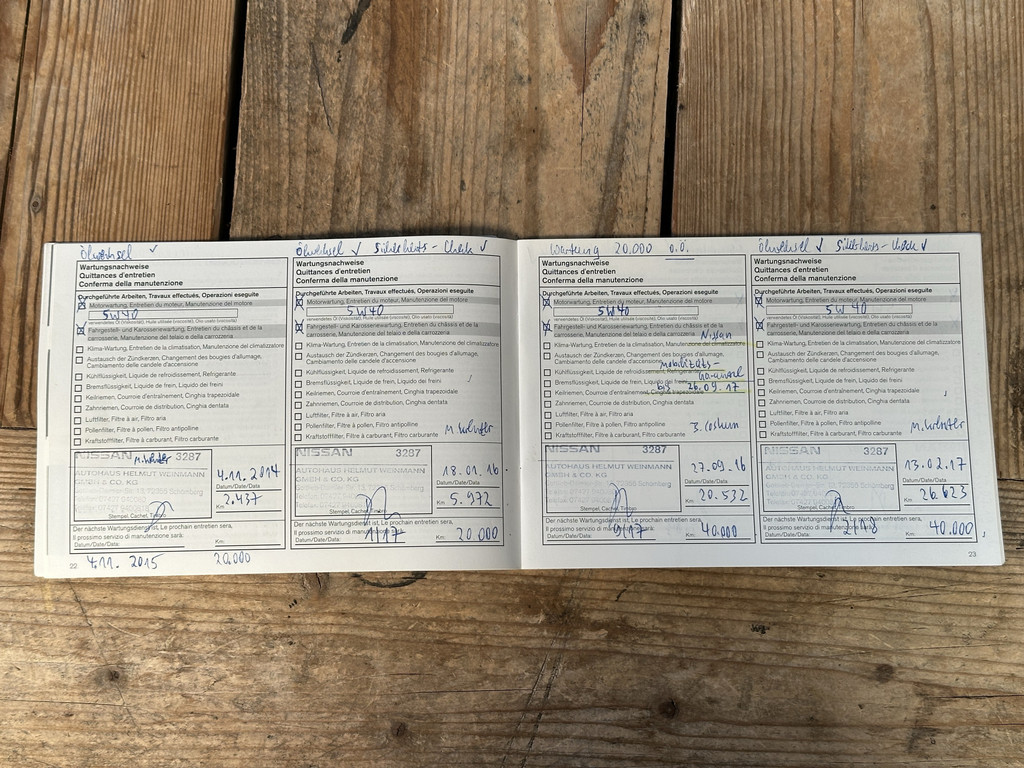 Ölwechsel ✓
Wartungsnachweise
Quittances d'entretien
Conferma della manutenzione
Durchgeführte Arbeiten, Travaux effectués, Operazioni eseguite
Motorwartung, Entretien du moteur, Manutenzione del motore
5W40
verwendetes Öl (Viskosität), Huile utilisée (viscosité), Olio usato (viscosità)
Fahrgestell- und Karosseriewartung, Entretien du châssis et de la
carrosserie, Manutenzione del telaio e della carrozzeria
Klima-Wartung, Entretien de la climatisation, Manutenzione del climatizzatore
Austausch der Zündkerzen, Changement des bougies d'allumage,
Cambiamento delle candele d'accensione
Kühlflüssigkeit, Liquide de refroidissement, Refrigerante
Bremsflüssigkeit, Liquide de frein, Liquido dei freini
Keilriemen, Courroie d'entraînement, Cinghia trapezoidale
Zahnriemen, Courroie de distribution, Cinghia dentata
Luftfilter, Filtre à air, Filtro aria
Pollenfilter, Filtre à pollen, Filtro antipolline
Kraftstofffilter, Filtre à carburant, Filtro carburante
NISSAN M. Winter 3287
AUTOHAUS HELMUT WEINMANN
GMBH & CO. KG
4.11.2014
Datum/Date/Data
2.437
Km
Stempel, Cachet, Timbro
Der nächste Wartungsdienst ist, Le prochain entretien sera,
Il prossimo servizio di manutenzione sarà:
Datum/Date/Data: Km:
22 4.11. 2015 20.000
Ölwechsel ✓ Sicherheits-Check ✓
Wartungsnachweise
Quittances d'entretien
Conferma della manutenzione
Durchgeführte Arbeiten, Travaux effectués, Operazioni eseguite
Motorwartung, Entretien du moteur, Manutenzione del motore
5W40
verwendetes Öl (Viskosität), Huile utilisée (viscosité), Olio usato (viscosità)
Fahrgestell- und Karosseriewartung, Entretien du châssis et de la
carrosserie, Manutenzione del telaio e della carrozzeria
Klima-Wartung, Entretien de la climatisation, Manutenzione del climatizzatore
Austausch der Zündkerzen, Changement des bougies d'allumage,
Cambiamento delle candele d'accensione
Kühlflüssigkeit, Liquide de refroidissement, Refrigerante
Bremsflüssigkeit, Liquide de frein, Liquido dei freini
Keilriemen, Courroie d'entraînement, Cinghia trapezoidale
Zahnriemen, Courroie de distribution, Cinghia dentata
Luftfilter, Filtre à air, Filtro aria
Pollenfilter, Filtre à pollen, Filtro antipolline
Kraftstofffilter, Filtre à carburant, Filtro carburante M. Winter
NISSAN 3287
AUTOHAUS HELMUT WEINMANN
GMBH & CO. KG
18.01.16
Datum/Date/Data
5.972
Km
Stempel, Cachet, Timbro
Der nächste Wartungsdienst ist, Le prochain entretien sera,
Il prossimo servizio di manutenzione sarà:
Datum/Date/Data: 1/17 Km: 20.000
Wartung 20.000 o.ö.
Wartungsnachweise
Quittances d'entretien
Conferma della manutenzione
Durchgeführte Arbeiten, Travaux effectués, Operazioni eseguite
Motorwartung, Entretien du moteur, Manutenzione del motore
5W40
verwendetes Öl (Viskosität), Huile utilisée (viscosité), Olio usato (viscosità)
Fahrgestell- und Karosseriewartung, Entretien du châssis et de la
carrosserie, Manutenzione del telaio e della carrozzeria
Nissan
Klima-Wartung, Entretien de la climatisation, Manutenzione del climatizzatore
Austausch der Zündkerzen, Changement des bougies d'allumage,
Cambiamento delle candele d'accensione
Mobilitäts-
Kühlflüssigkeit, Liquide de refroidissement, Refrigerante
Bremsflüssigkeit, Liquide de frein, Liquido dei freini
bis 26.09.17
Keilriemen, Courroie d'entraînement, Cinghia trapezoidale
Zahnriemen, Courroie de distribution, Cinghia dentata
Luftfilter, Filtre à air, Filtro aria
Pollenfilter, Filtre à pollen, Filtro antipolline
Kraftstofffilter, Filtre à carburant, Filtro carburante
NISSAN 3287
AUTOHAUS HELMUT WEINMANN
GMBH & CO. KG
27.09.16
Datum/Date/Data
20.532
Km
Stempel, Cachet, Timbro
Der nächste Wartungsdienst ist, Le prochain entretien sera,
Il prossimo servizio di manutenzione sarà:
Datum/Date/Data: 9/17 Km: 40.000
Ölwechsel ✓ Sicherheits-Check ✓
Wartungsnachweise
Quittances d'entretien
Conferma della manutenzione
Durchgeführte Arbeiten, Travaux effectués, Operazioni eseguite
Motorwartung, Entretien du moteur, Manutenzione del motore
5W40
verwendetes Öl (Viskosität), Huile utilisée (viscosité), Olio usato (viscosità)
Fahrgestell- und Karosseriewartung, Entretien du châssis et de la
carrosserie, Manutenzione del telaio e della carrozzeria
Klima-Wartung, Entretien de la climatisation, Manutenzione del climatizzatore
Austausch der Zündkerzen, Changement des bougies d'allumage,
Cambiamento delle candele d'accensione
Kühlflüssigkeit, Liquide de refroidissement, Refrigerante
Bremsflüssigkeit, Liquide de frein, Liquido dei freini
Keilriemen, Courroie d'entraînement, Cinghia trapezoidale
Zahnriemen, Courroie de distribution, Cinghia dentata
Luftfilter, Filtre à air, Filtro aria
Pollenfilter, Filtre à pollen, Filtro antipolline
M. Winter
Kraftstofffilter, Filtre à carburant, Filtro carburante
NISSAN 3287
AUTOHAUS HELMUT WEINMANN
GMBH & CO. KG
13.02.17
Datum/Date/Data
26.623
Km
Stempel, Cachet, Timbro
Der nächste Wartungsdienst ist, Le prochain entretien sera,
Il prossimo servizio di manutenzione sarà:
Datum/Date/Data: 2/18 Km: 40.000
23